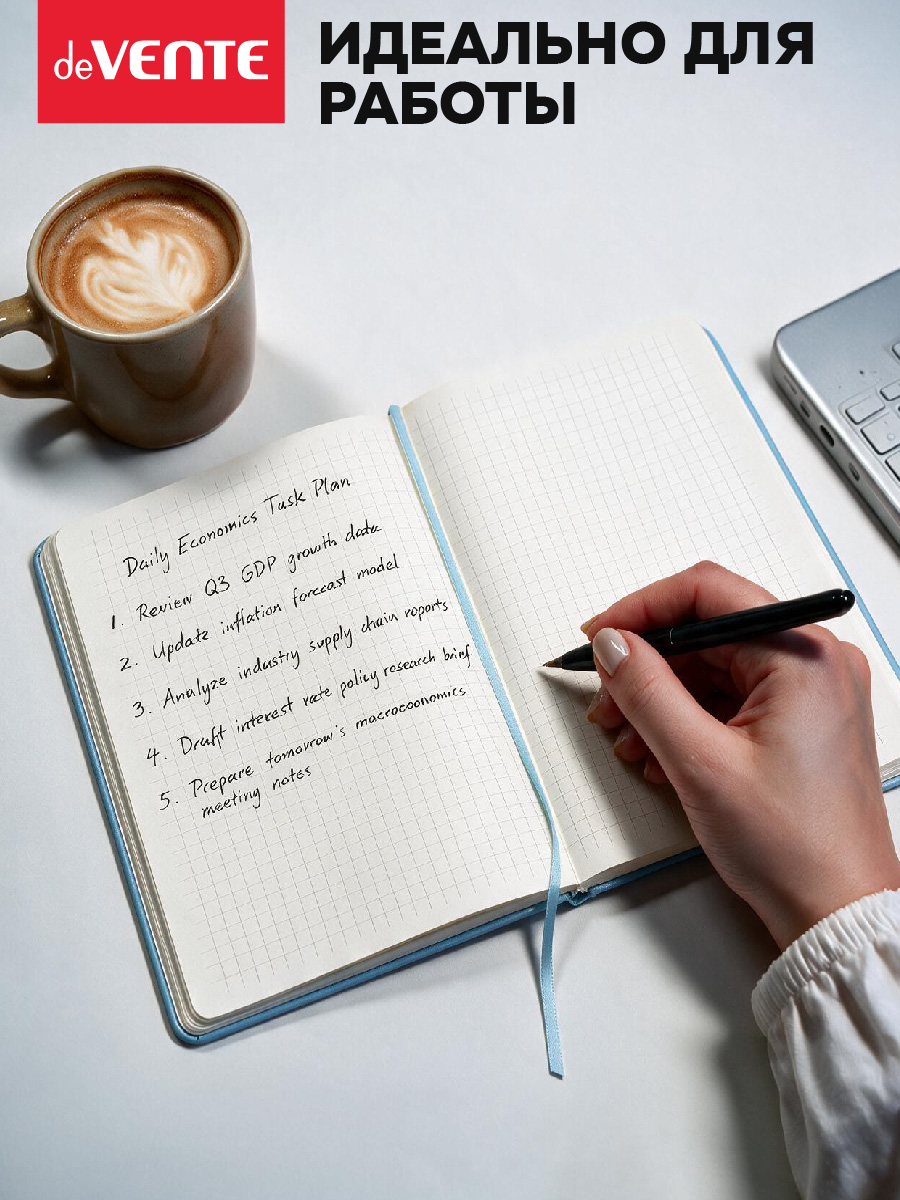 deVENTE
ИДЕАЛЬНО ДЛЯ
РАБОТЫ
Daily Economics Task Plan
1. Review Q3 GDP growth data
2. Update inflation forecast model
3. Analyze industry supply chain reports
4. Draft interest rate policy research brief
5. Prepare tomorrow's macroeconomics
meeting notes